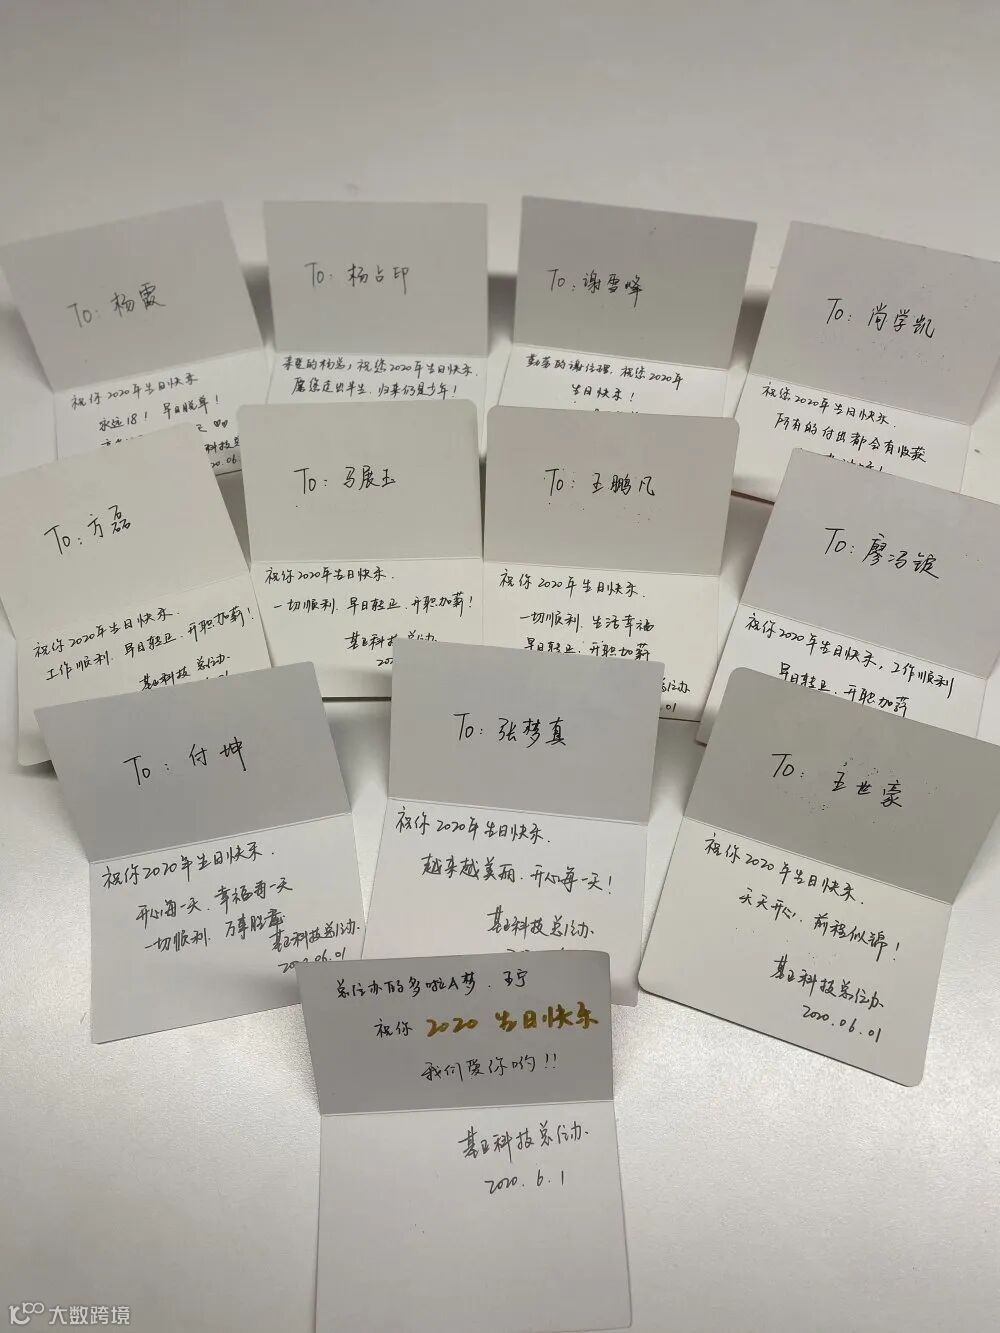 To: 杨霞
祝你2020年生日快乐
永远18！早日脱单！
科技总
20.06.
To: 杨占印
亲爱的杨总，祝您2020年生日快乐.
愿您走出半生，归来仍是少年！
To: 谢雪峰
谢经理，祝您2020年
生日快乐！
To: 尚学凯
祝您2020年生日快乐.
所有的付出都会有收获
To: 方磊
祝你2020年生日快乐.
工作顺利. 早日转正、升职加薪！
基正科技 总经办
To: 马展玉
祝你2020年生日快乐.
一切顺利. 早日转正、升职加薪！
基正科技总经办
202
To: 王鹏凡
祝你2020年生日快乐.
一切顺利. 生活幸福
早日转正、升职加薪
总经办
.01
To: 廖冯锭
祝你2020年生日快乐，工作顺利
早日转正、升职加薪
To: 付坤
祝你2020年生日快乐.
开心每一天. 幸福每一天
一切顺利. 万事胜意
基正科技总经办
2020.06.01
To: 张梦真
祝你2020年生日快乐.
越来越美丽. 开心每一天！
基正科技总经办
To: 王世豪
祝你2020年生日快乐.
天天开心，前程似锦！
基正科技总经办
2020.06.01
总经办的多啦A梦、王宁
祝你 2020 生日快乐
我们爱你哟!!
基正科技总经办.
2020.6.1
大数跨境